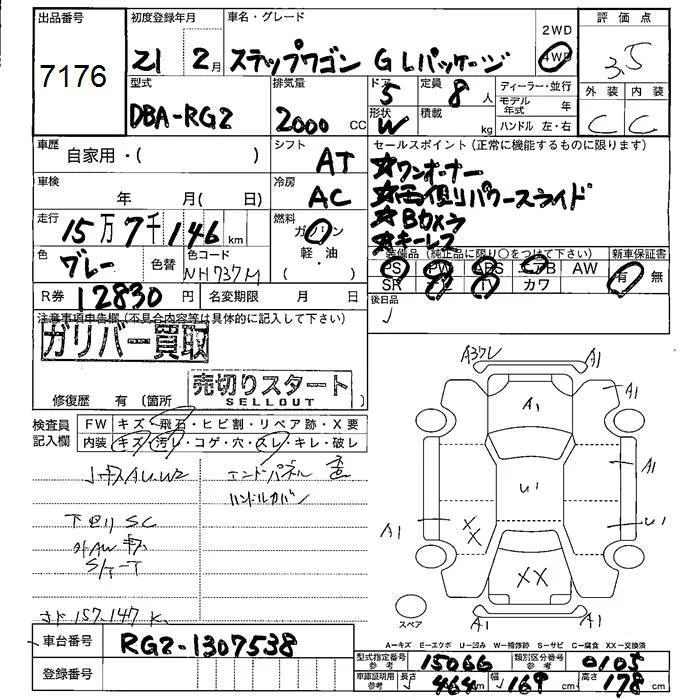 出品番号 初度登録年月 車名・グレード 2WD 評価点
7176 21 2月 ステップワゴン Ｇ Ｌパッケージ 4WD 3.5
型式 排気量 ドア 定員 ディーラー・並行 外装 内装
DBA-RG2 2000 CC 5 8人 モデル年式 年 C C
形状 W 積載 kg ハンドル 左・右
車歴 自家用・( ) シフト AT セールスポイント(正常に機能するものに限ります)
車検 年 月( 日) 冷房 AC ★ワンオーナー
★両側パワースライド
走行 15万7千146km 燃料 ガソリン ★Bカメラ
軽・油 ★キーレス
( )
色 グレー 色替 色コード NH737M 装備品(純正品に限り○をつけて下さい) 新車保証書
PS PW ABS エアB AW 有 無
SR ナビ TV カワ
R券 12830円 名変期限 月 日 後日品
注意事項申告欄(不具合内容等は具体的に記入して下さい)
ガリバー買取
売切りスタート
SELLOUT
修復歴 有(箇所 )
検査員記入欄 FW キズ・飛石・ヒビ割・リペア跡・X要
内装 キズ・汚レ・コゲ・穴・スレ・キレ・破レ
エンドパネル
ハンドルカバー
下回り SC
157.147K
A1
A1
A1
A1
A1
U1
U1
A1
XX
XX
A1
スペア
A=キズ E=エクボ U=凹み W=補修跡 S=サビ C=腐食 XX=交換済
車台番号 RG2-1307538
型式指定番号 参考 15066 類別区分番号 参考 0105
登録番号
車庫証明用 参考 長さ 464cm 幅 169cm 高さ 178cm